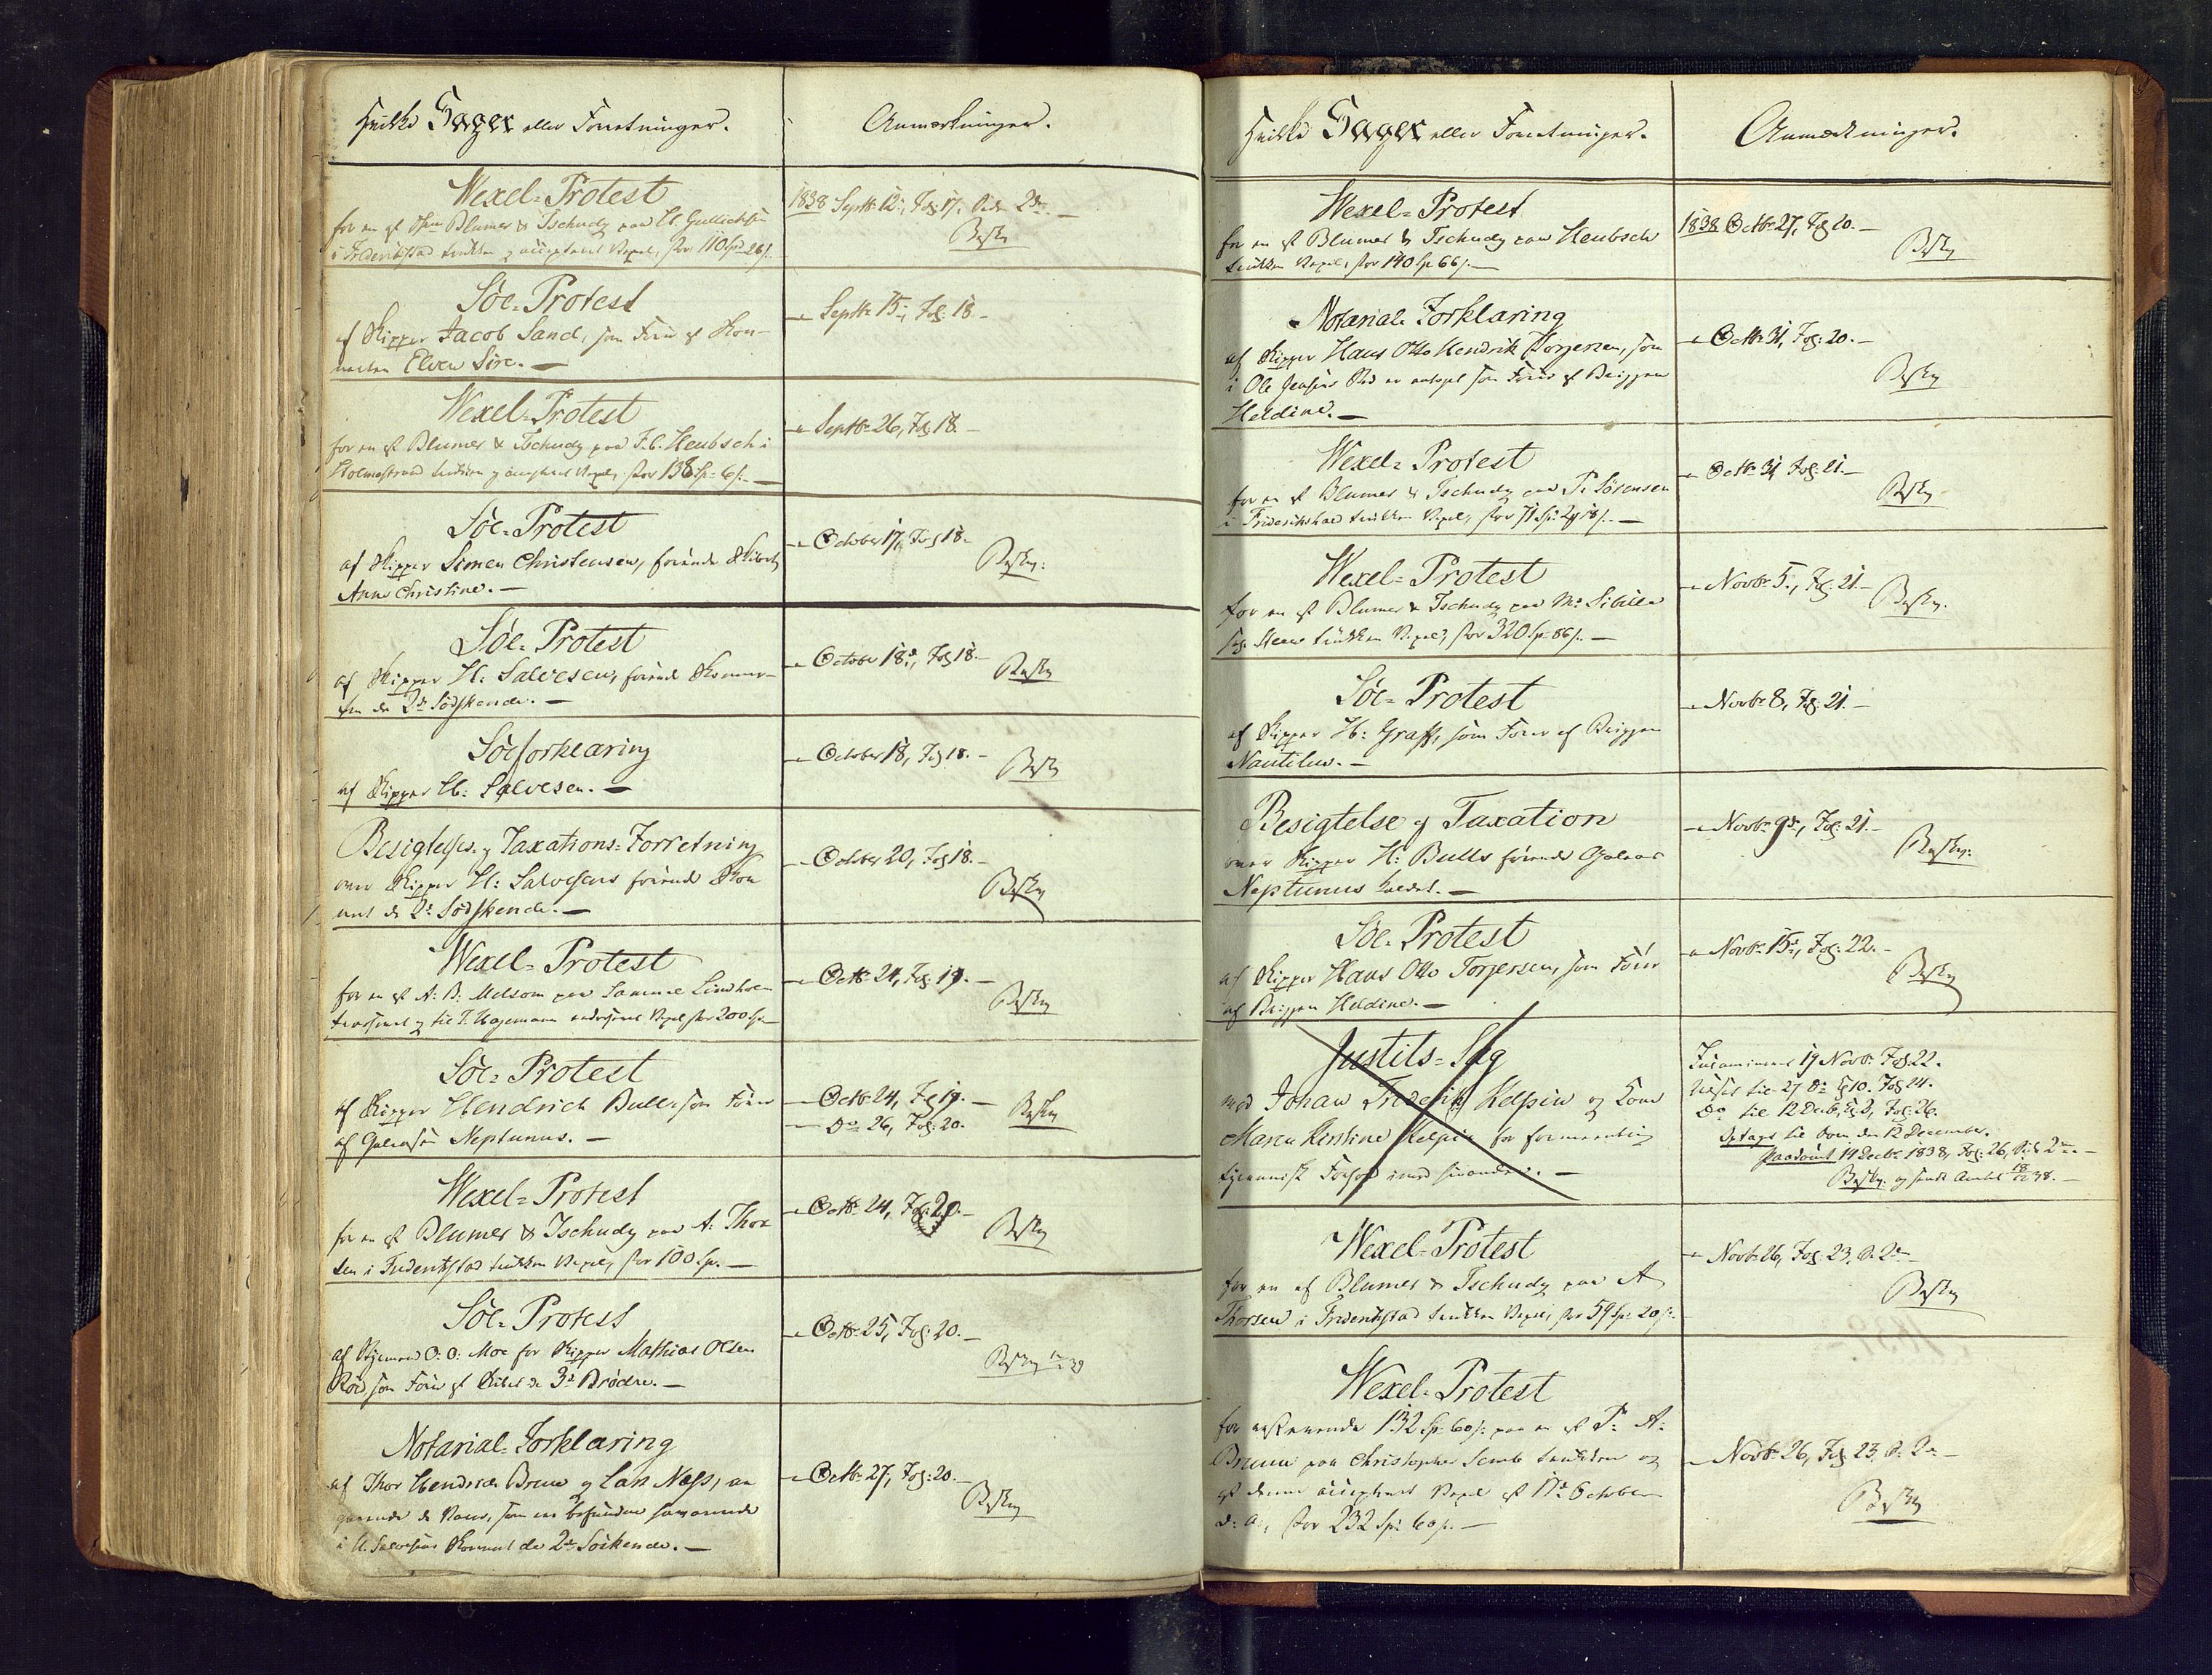 Hvilke Sager eller Forretninger.
Anmærkninger.
Wexel-Protest
for en af Hrr Blumer & Tschudy paa H. Gullichsen
i Frederikstad trukken og accepteret Vexel, stor 110 Spd 26 s.
1838 Septbr 12, Fol: 17. Side 2den. —
Besk.
Søe-Protest
af Skipper Jacob Sand, som Fører af Skon-
nerten Elven Sire. —
— Septbr 15, Fol: 18. —
Wexel-Protest
for en af Blumer & Tschudy paa F. C. Heubsch i
Holmestrand trukken og accepteret Vexel, stor 138 Sp: 6 s. —
— Septbr 26, Fol: 18. —
Søe-Protest
af Skipper Simen Christensen, førende Skibet
Anne Christine. —
— October 17, Fol 18. —
Besk:
Søe-Protest
af Skipper H: Salvesen, førende Skonner-
ten de 2de Södskende. —
— October 18de, Fol 18. —
Besk
Søeforklaring
af Skipper H: Salvesen. —
— October 18, Fol 18. —
Besk
Besigtelses- og Taxations-Forretning
over Skipper H: Salvesens førende Skon
nert de 2de Södskende. —
— October 20, Fol 18. —
Besk
Wexel-Protest
for en af A: B: Melsom paa Samuel Lindholm
trasseret og til F. Hagemann endosseret Vexel stor 200 Sp. —
— Octbr 24, Fol: 19. —
Besk
Søe-Protest
af Skipper Hendrich Bull, som Fører
af Galeasen Neptunus. —
— Octbr 24, Fol 19. —
— Do 26, Fol: 20.
Besk
Wexel-Protest
for en af Blumer & Tschudy paa A: Thor
sen i Frederikstad trukken Vexel, stor 100 Sp. —
— Octbr 24, Fol: 20. —
Besk
Søe-Protest
af Styrmand O: O: Moe for Skipper Mathias Olsen
Röed, som Fører af Skibet de 3de Brødre. —
— Octbr 25, Fol: 20. —
Besk
Notarial-Forklaring
af Thor Hendrich Bruu og Lars Næss, an
gaaende de Varer, som ere befundne havarerede
i H. Salvesens Skonnert de 2de Söskende. —
— Octbr 27, Fol: 20. —
Besk
Hvilke Sager eller Forretninger.
Anmærkninger.
Wexel-Protest
for en af Blumer & Tschudy paa Heubsch
trukken Vexel, stor 140 Sp 66 s. —
1838 Octbr 27, Fol 20. —
Besk
Notarial-Forklaring
af Skipper Hans Otto Hendrik Torjersen, som
i Ole Jensens Sted er antaget som Fører af Briggen
Heldine. —
— Octbr 31, Fol: 20. —
Besk
Wexel-Protest
for en af Blumer & Tschudy paa P. Sörensen
i Frederikshald trukken Vexel, stor 71 Sp: 2 ort 18 s. —
— Octbr 31 Fol: 21. —
Besk
Wexel-Protest
for en af Blumer & Tschudy paa M: Sibille
trukken Vexel, stor 320 Sp: 86 s. —
— Novbr 5, Fol: 21. —
Besk.
Søe-Protest
af Skipper H: Graff, som Fører af Briggen
Nautilus. —
— Novbr 8, Fol: 21. —
Besigtelse og Taxation
over Skipper H: Bulls førende Galeas
Neptunus kaldet. —
— Novbr 9de, Fol: 21. —
Besk:
Søe-Protest
af Skipper Hans Otto Torjersen, som Fører
af Briggen Heldine. —
— Novbr 15de, Fol: 22. —
Besk
Justits-Sag
mod Johan Frederik Kelpin og Kone
Maren Kirstine Kelpin for formeentlig
tyrannisk Forhold imod hinanden. —
Incamineret 19 Novbr Fol 22.
Udsat til 27 Do Kl 10. Fol 24.
Do til 12 Decbr, Kl 2, Fol: 26.
Optaget til Dom den 12 December.
Paadömt 14 Decbr 1838, Fol: 26, Side 2den. —
Besk: og sendt Amtet 18/12 38. —
Wexel-Protest
for en af Blumer & Tschudy paa A
Thorsen i Frederikstad trukken Vexel, stor 59 Sp: 20 s.
— Novbr 26, Fol 23, S. 2den —
Besk
Wexel-Protest
for resterende 132 Sp: 60 s. paa en af P: A:
Bruun paa Christopher Semb trukken og
af denne accepteret Vexel af 17de October
d: A:, stor 232 Sp: 60 s. —
— Novbr 26, Fol 23, S. 2den —
Besk